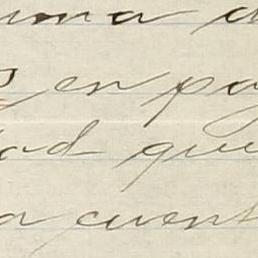 uma a
s en pa
tad que
a cuent